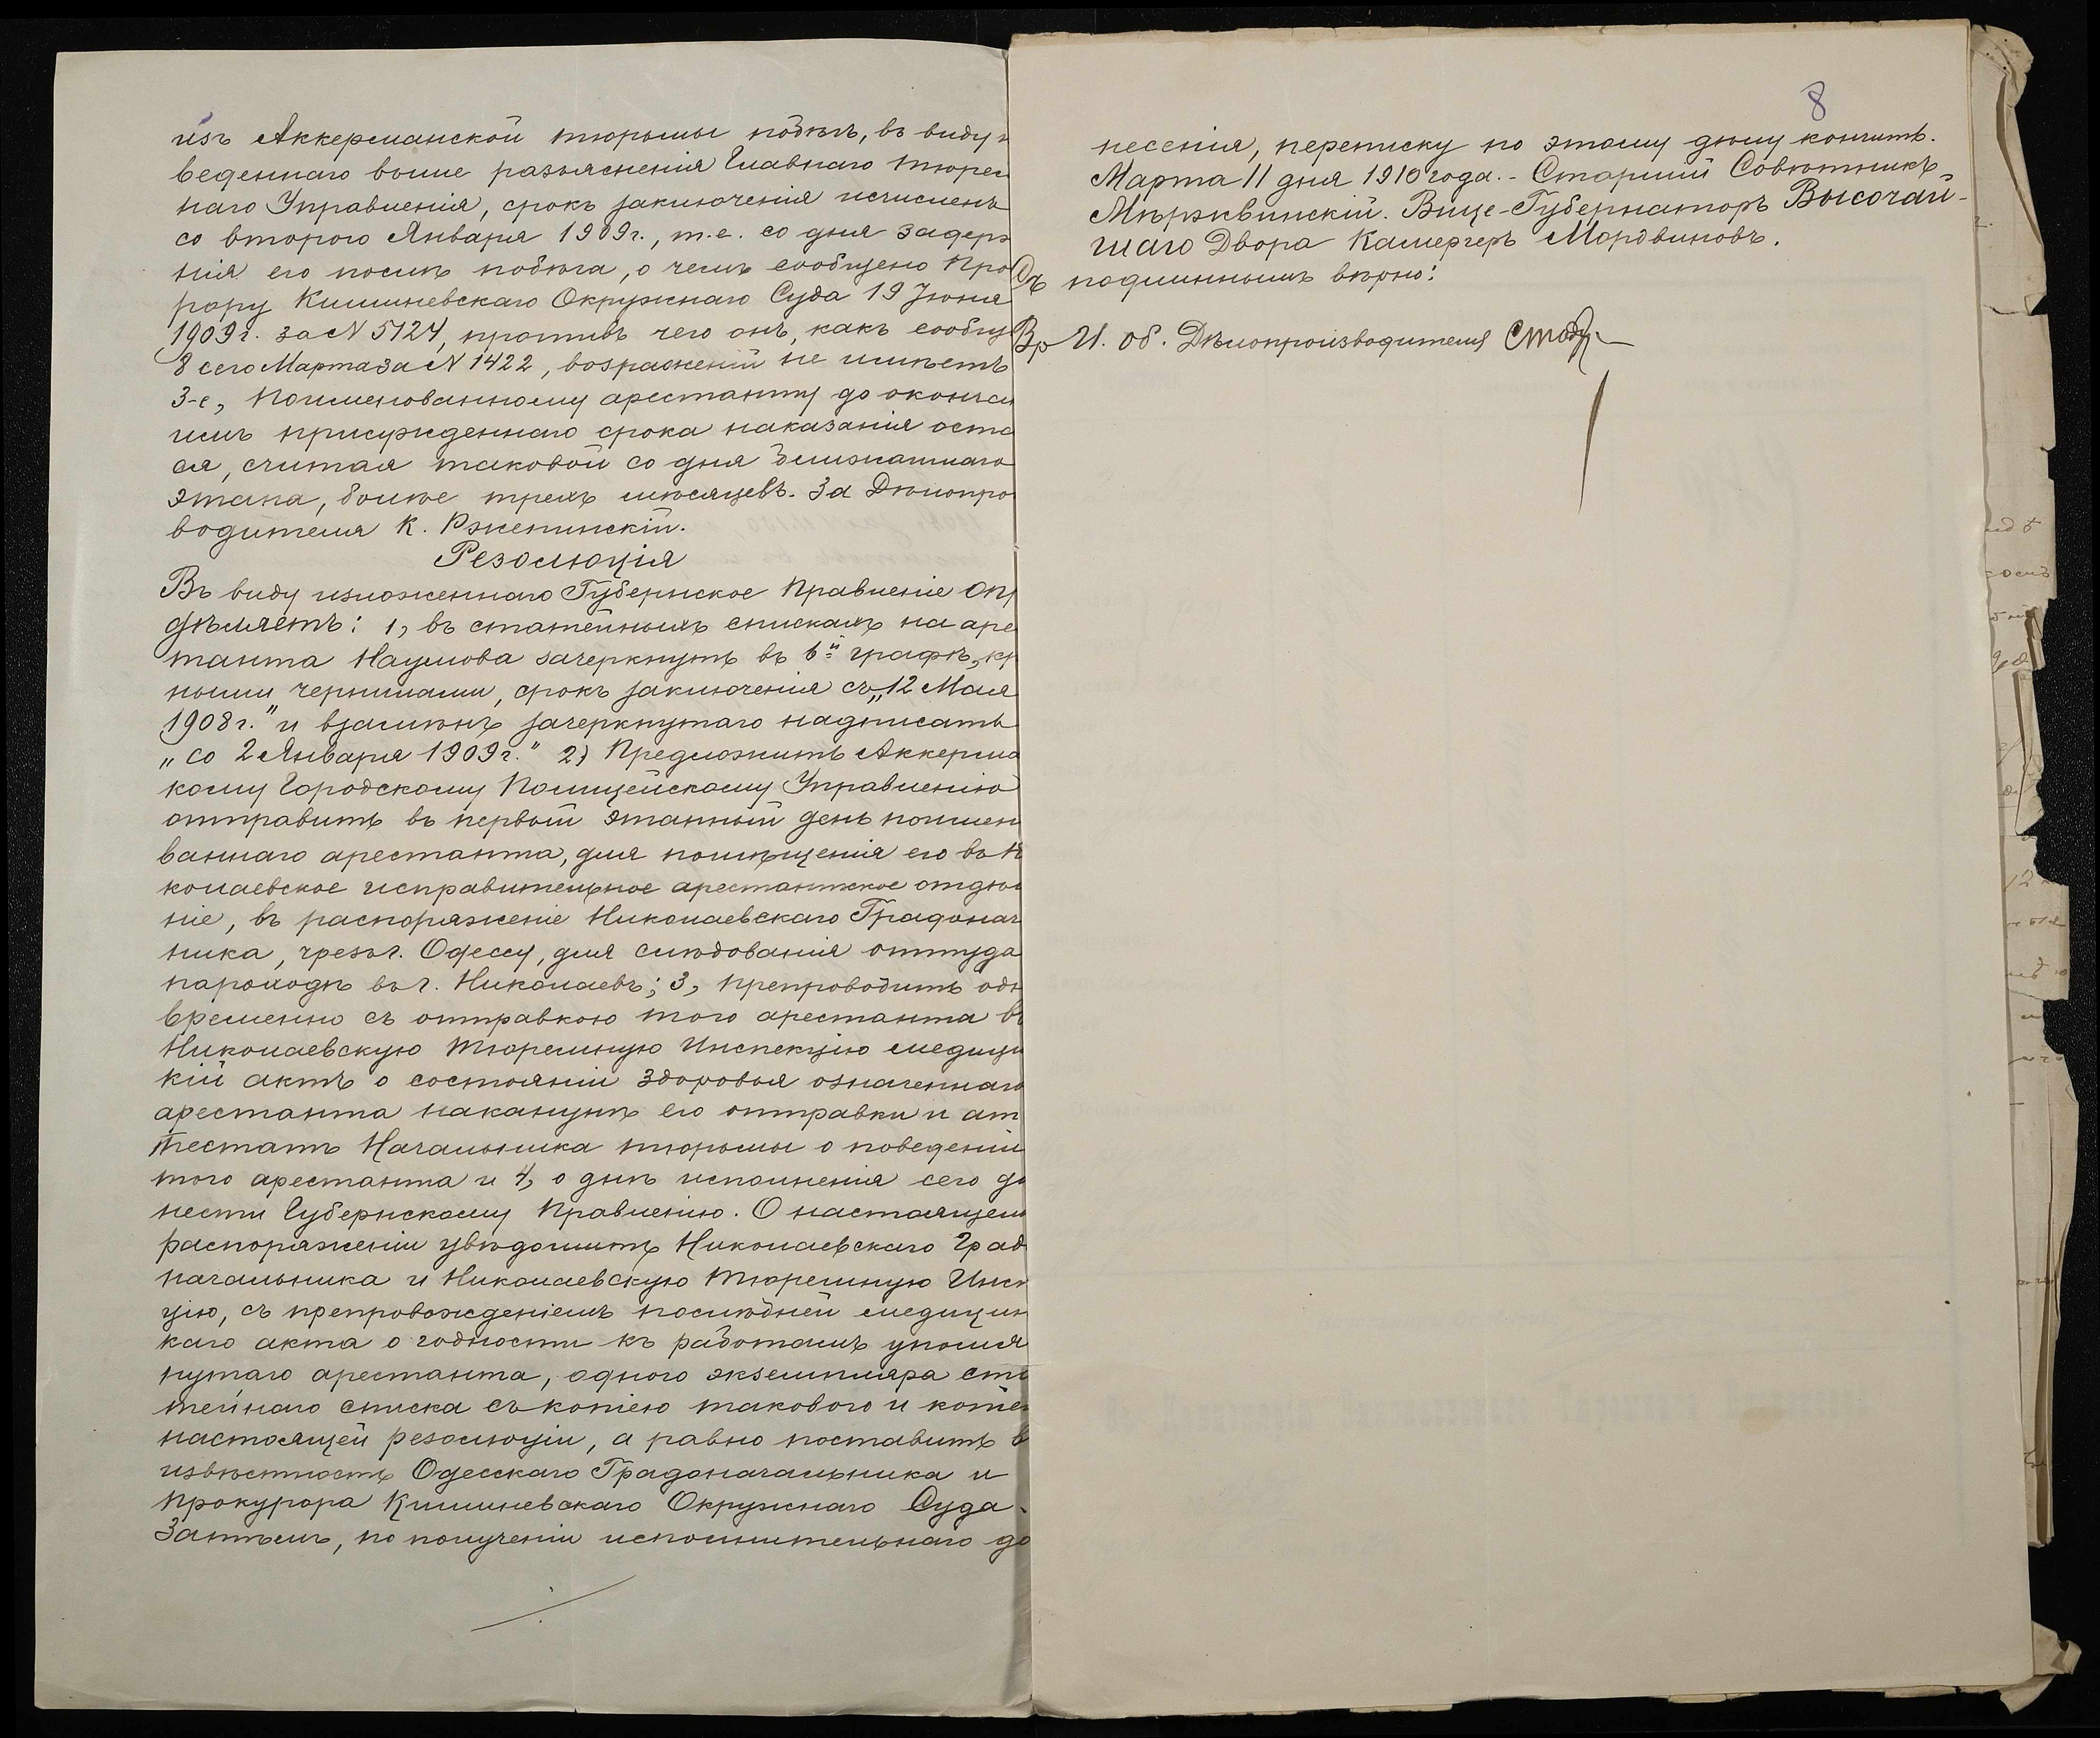 изъ Аккерманской тюрьмы побѣгъ, въ виду
веденнаго выше разъясненія Главнаго тюрем
наго Управленія, срокъ заключенія исчисленъ
со второго Января 1909 г., т.е. со дня задерж
нія его послѣ побѣга, о чемъ сообщено Про
рору Кишиневскаго Окружнаго Суда 19 Іюня
1909 г. за N 5124, противъ чего онъ, какъ сообщ
8 сего Марта за N 1422, возраженій не имѣетъ
3-е, Поименованному арестанту до оконча
имъ присужденнаго срока наказанія оста
ся, считая таковой со дня ближайшаго
этапа, болѣе трехъ мѣсяцевъ. За Дѣлопро
водителя К. Ржепинскій.
Резолюція
Въ виду изложеннаго Губернское Правленіе Опр
дѣляетъ: 1, въ статейныхъ спискахъ на аре
танта Наумова зачеркнуть въ 6й графѣ, кр
ными чернилами, срокъ заключенія съ „12 Мая
1908 г." и взамѣнъ зачеркнутаго надписать
„со 2 Января 1909 г." 2) Предложить Аккерма
кому Городскому Полицейскому Управленію
отправить въ первый этапный день поимен
ваннаго арестанта, для помѣщенія его въ Н
колаевское исправительное арестантское отдѣл
ніе, въ распоряженіе Николаевскаго Градонач
ника, чрезъ г. Одессу, для слѣдованія оттуда
пароходѣ въ г. Николаевъ; 3, препроводить одн
временно съ отправкою того арестанта въ
Николаевскую Тюремную Инспекцію медици
кій актъ о состояніи здоровья означеннаго
арестанта наканунѣ его отправки и ат
тестатъ Начальника тюрьмы о поведеніи
того арестанта и 4, о днѣ исполненія сего до
нести Губернскому Правленію. О настоящем
распоряженіи увѣдомить Николаевскаго Град
начальника и Николаевскую Тюремную Инсп
цію, съ препровожденіемъ послѣдней медицин
каго акта о годности къ работамъ упомя
нутаго арестанта, одного экземпляра ста
тейнаго списка съ копіею такового и копіе
настоящей резолюціи, а равно поставить в
извѣстность Одесскаго Градоначальника и
Прокурора Кишиневскаго Окружнаго Суда.
Затѣмъ, по полученіи исполнительнаго до
8
несенія, переписку по этому дѣлу кончить.
Марта 11 дня 1910 года. - Старшій Совѣтникъ
Мѣржвинскій. Вице-Губернаторъ Высочай-
шаго Двора Камергеръ Мордвиновъ.
Съ подлиннымъ вѣрно:
Вр И. об. Дѣлопроизводителя